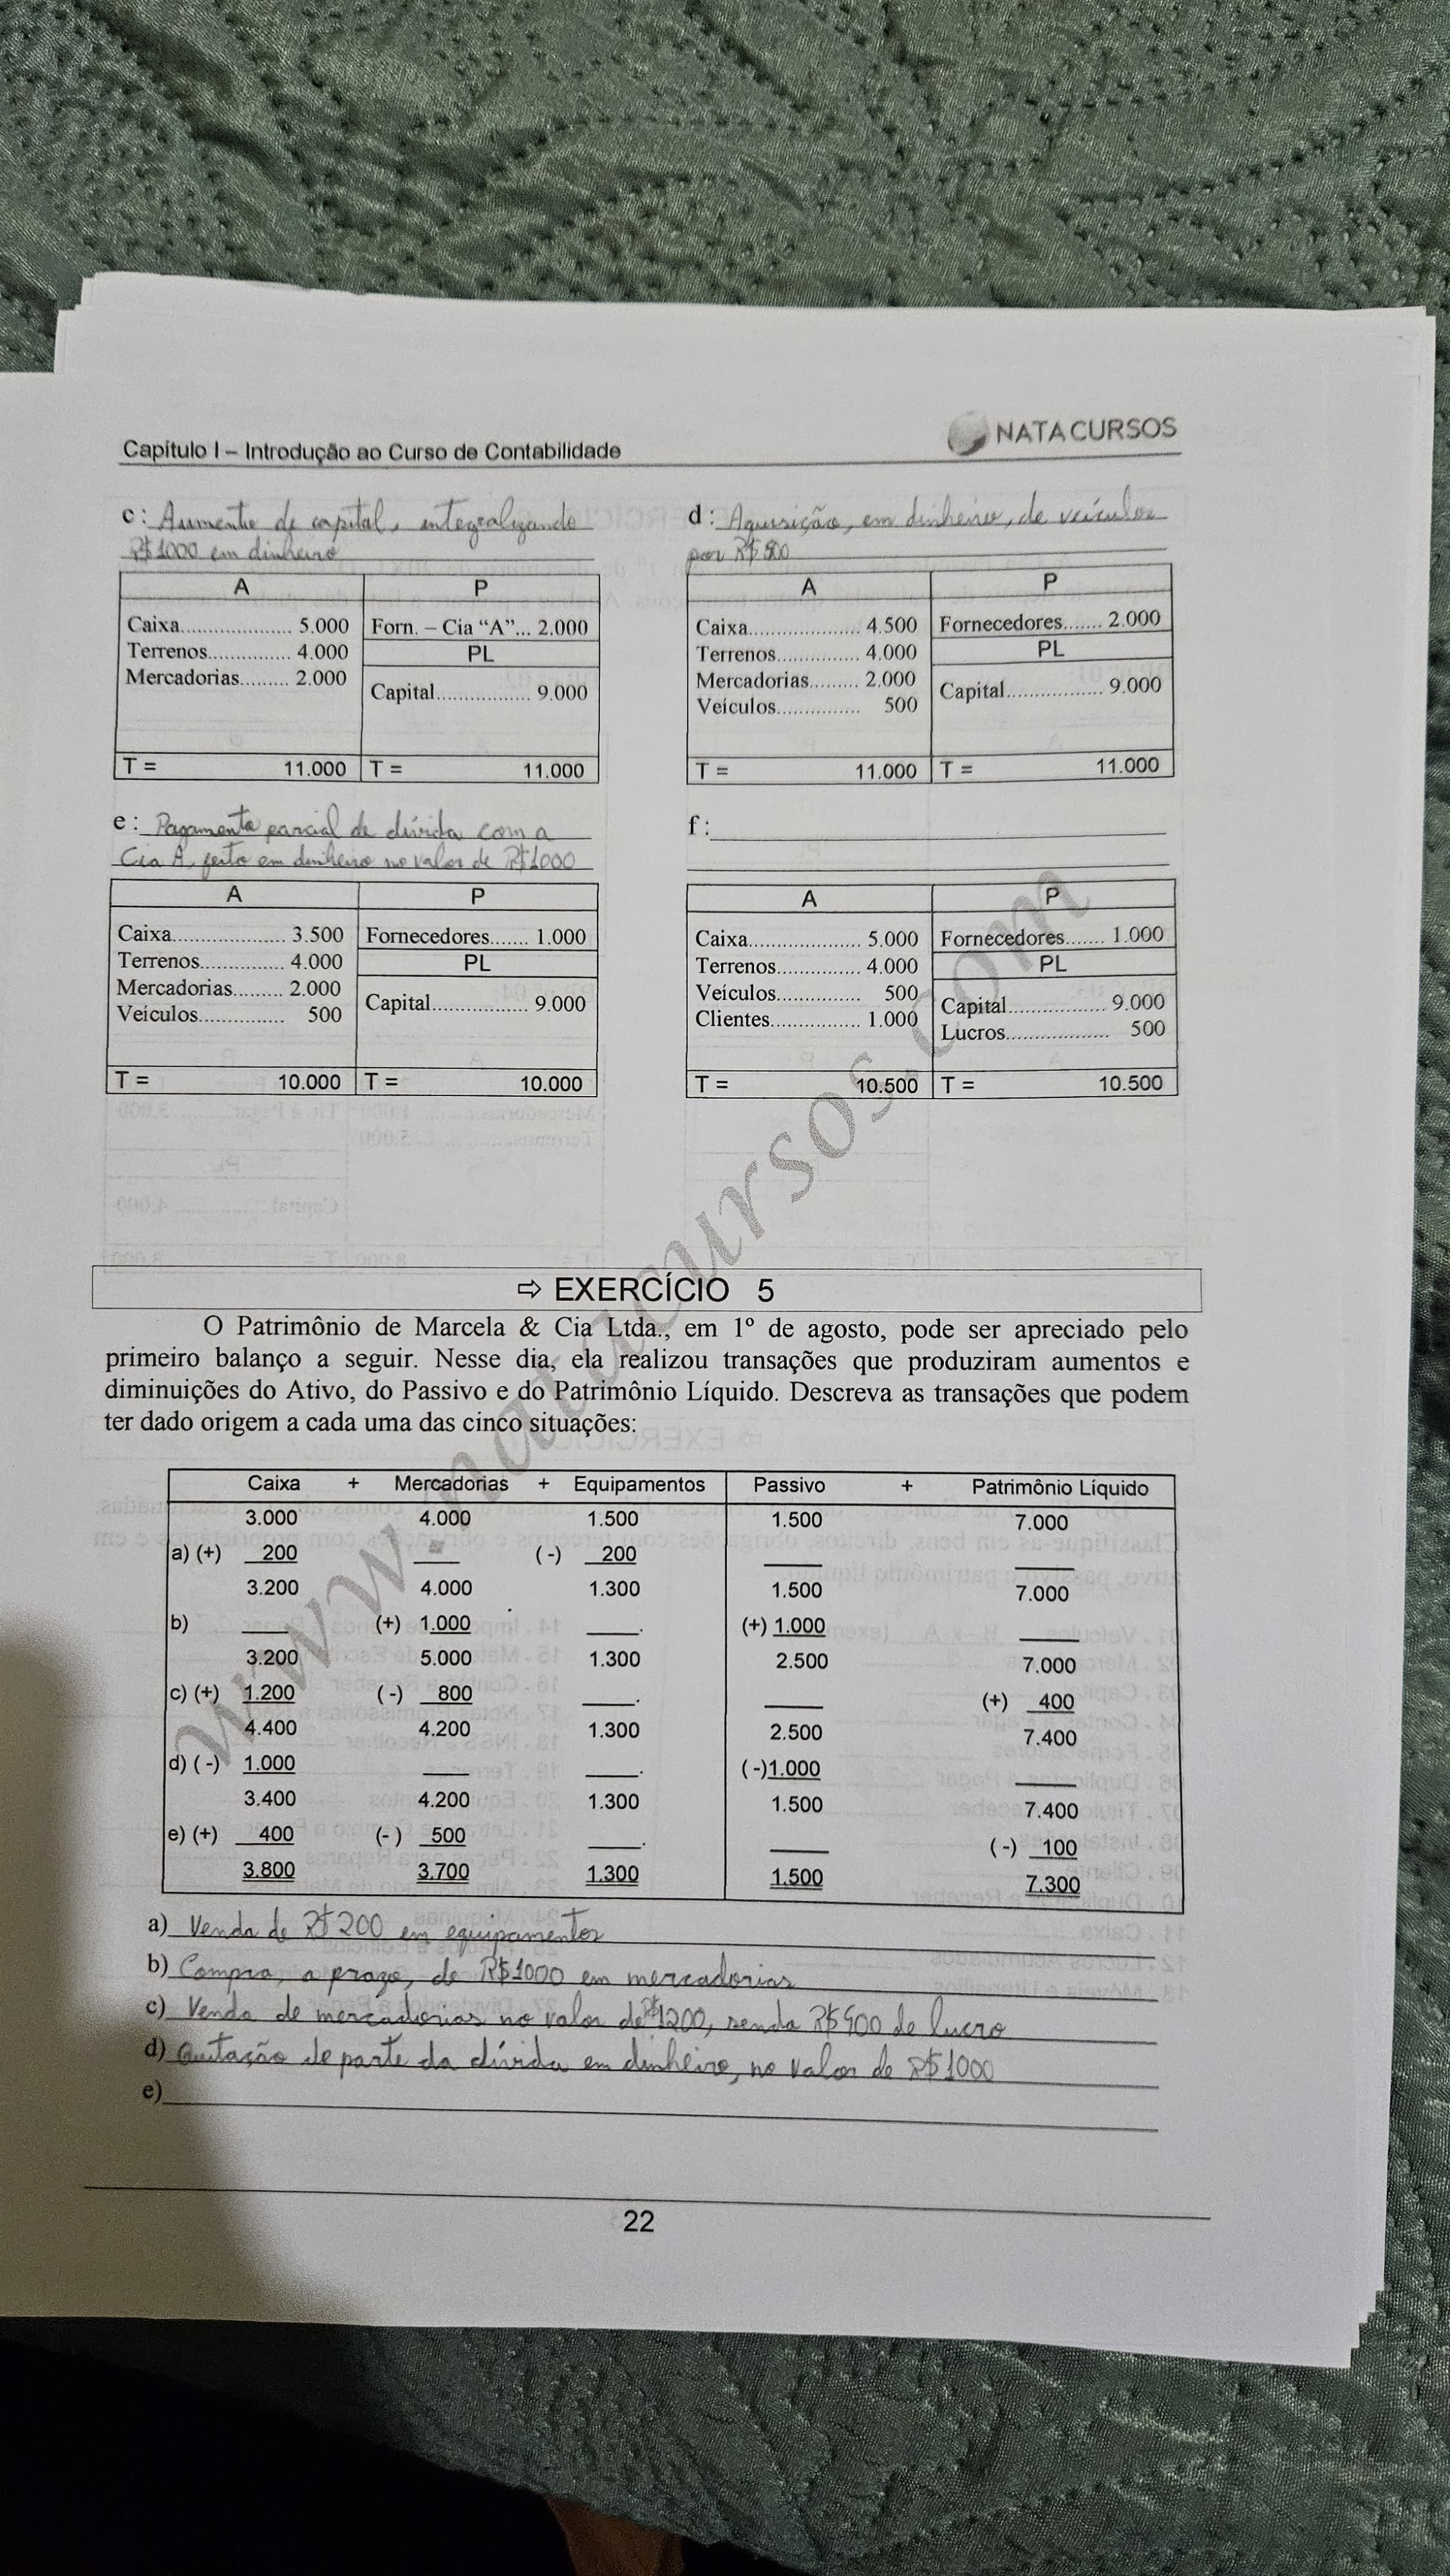 Capítulo I – Introdução ao Curso de Contabilidade
NATA CURSOS
c: Aumento de capital, integralizando
R$1000 em dinheiro
A P
Caixa.................... 5.000 Forn. – Cia “A”... 2.000
Terrenos............... 4.000 PL
Mercadorias......... 2.000
Capital................. 9.000
T = 11.000 T = 11.000
d: Aquisição, em dinheiro, de veículos
por R$500
A P
Caixa.................... 4.500 Fornecedores....... 2.000
Terrenos............... 4.000 PL
Mercadorias......... 2.000 Capital................. 9.000
Veículos............... 500
T = 11.000 T = 11.000
e: Pagamento parcial de dívida com a
Cia A, feito em dinheiro no valor de R$1000
A P
Caixa.................... 3.500 Fornecedores....... 1.000
Terrenos............... 4.000 PL
Mercadorias......... 2.000 Capital................. 9.000
Veículos............... 500
T = 10.000 T = 10.000
f:
A P
Caixa.................... 5.000 Fornecedores....... 1.000
Terrenos............... 4.000 PL
Veículos............... 500 Capital................. 9.000
Clientes................ 1.000 Lucros.................. 500
T = 10.500 T = 10.500
www.natacursos.com
⇨ EXERCÍCIO 5
O Patrimônio de Marcela & Cia Ltda., em 1º de agosto, pode ser apreciado pelo
primeiro balanço a seguir. Nesse dia, ela realizou transações que produziram aumentos e
diminuições do Ativo, do Passivo e do Patrimônio Líquido. Descreva as transações que podem
ter dado origem a cada uma das cinco situações:
Caixa + Mercadorias + Equipamentos Passivo + Patrimônio Líquido
3.000 4.000 1.500 1.500 7.000
a) (+) 200 (-) 200
3.200 4.000 1.300 1.500 7.000
b) (+) 1.000 (+) 1.000
3.200 5.000 1.300 2.500 7.000
c) (+) 1.200 (-) 800 (+) 400
4.400 4.200 1.300 2.500 7.400
d) (-) 1.000 (-)1.000
3.400 4.200 1.300 1.500 7.400
e) (+) 400 (-) 500 (-) 100
3.800 3.700 1.300 1.500 7.300
a) Venda de R$200 em equipamentos
b) Compra, a prazo, de R$1000 em mercadorias
c) Venda de mercadorias no valor de R$1200, sendo R$400 de lucro
d) Quitação de parte da dívida em dinheiro, no valor de R$1000
e)
22